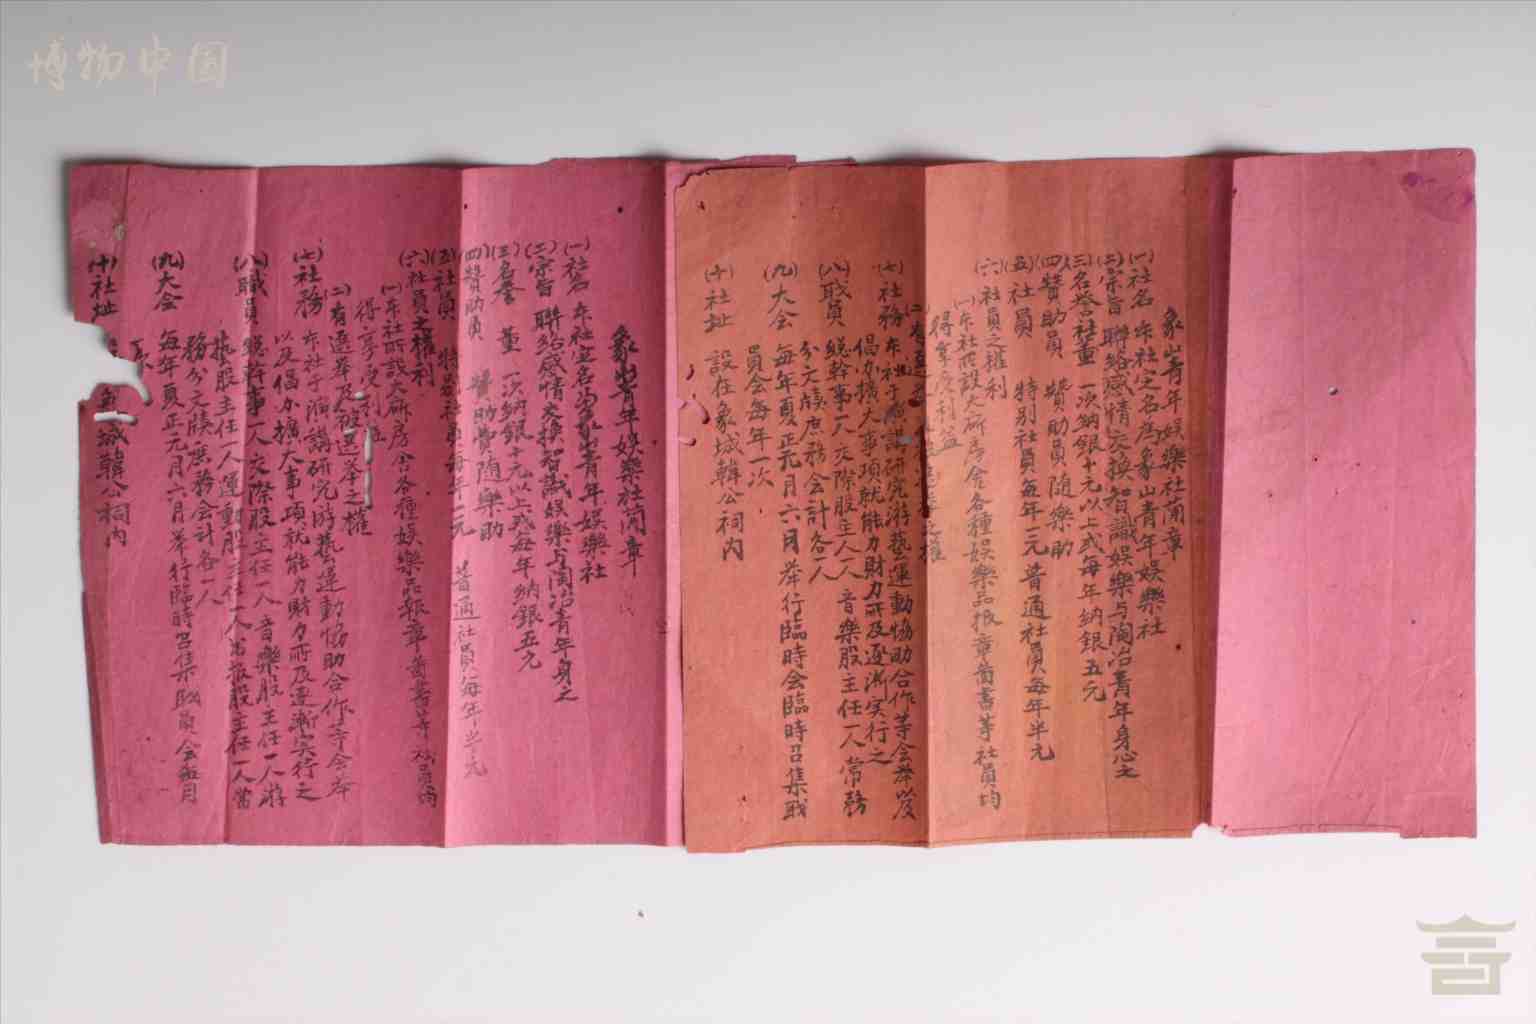 博物中国
象山青年娱樂社简章
(一)社名 本社定名為象山青年娱樂社
(二)宗旨 聯絡感情交換智識娱樂与陶冶青年身心之
(三)名誉社董 一次納銀十元以上或每年納銀五元
(四)贊助員 贊助員随樂助
(五)社員 特别社員每年一元 普通社員每年半元
(六)社員之權利
(一)本社所設大厠房舍各種娱樂品报章啚書等社員均
得享受利益
(二)有選 之權
(七)社務 本社于 講研究游藝運動協助合作等会举以及
倡办擴大事項就能力財力所及逐漸实行之
(八)職員 總幹事一人 交際股主任一人 音樂股主任一人 常務
分文牍庶務会計各一人
(九)大会 每年夏正元月六日举行臨時会臨時召集职
員会每年一次
(十)社址 設在象城韓公祠内
象山青年娱樂社简章
(一)社名 本社定名為象山青年娱樂社
(二)宗旨 聯絡感情交換智識娱樂与陶冶青年身之
(三)名誉 董 一次納銀十元以上或每年納銀五元
(四)贊助員 贊助費随樂助
(五)社員 特别社員每年一元 普通社員每年半元
(六)社員之權利
(一)本社所設大厠房舍各種娱樂品報章啚書等社員均
得享受利
(二)有選举及被选举之權
(七)社務 本社于演講研究游藝運動協助合作等会举
以及倡办擴大事項就能力財力所及逐漸实行之
(八)職員 總幹事一人 交際股主任一人 音樂股主任一人 游
執股主任一人 運動股主任一人 书报股主任一人 常
務分文牍庶務会計各一人
(九)大会 每年夏正元月六日举行臨時召集职員会每月
一次
(十)社址 象城韓公祠内